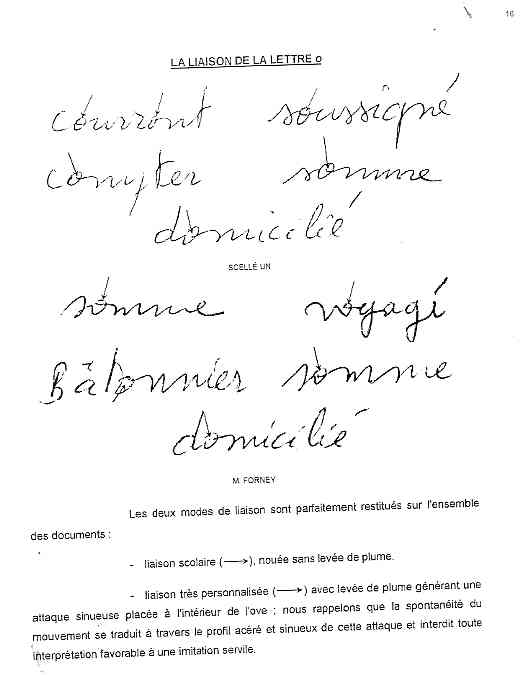 16
LA LIAISON DE LA LETTRE o
courront soussigné
compter somme
domicilié
SCELLÉ UN
somme voyagé
Bâtonnier somme
domicilié
M. FORNEY
Les deux modes de liaison sont parfaitement restitués sur l'ensemble
des documents :
- liaison scolaire (⟶), nouée sans levée de plume.
- liaison très personnalisée (⟶) avec levée de plume générant une
attaque sinueuse placée à l'intérieur de l'ove ; nous rappelons que la spontanéité du
mouvement se traduit à travers le profil acéré et sinueux de cette attaque et interdit toute
interprétation favorable à une imitation servile.